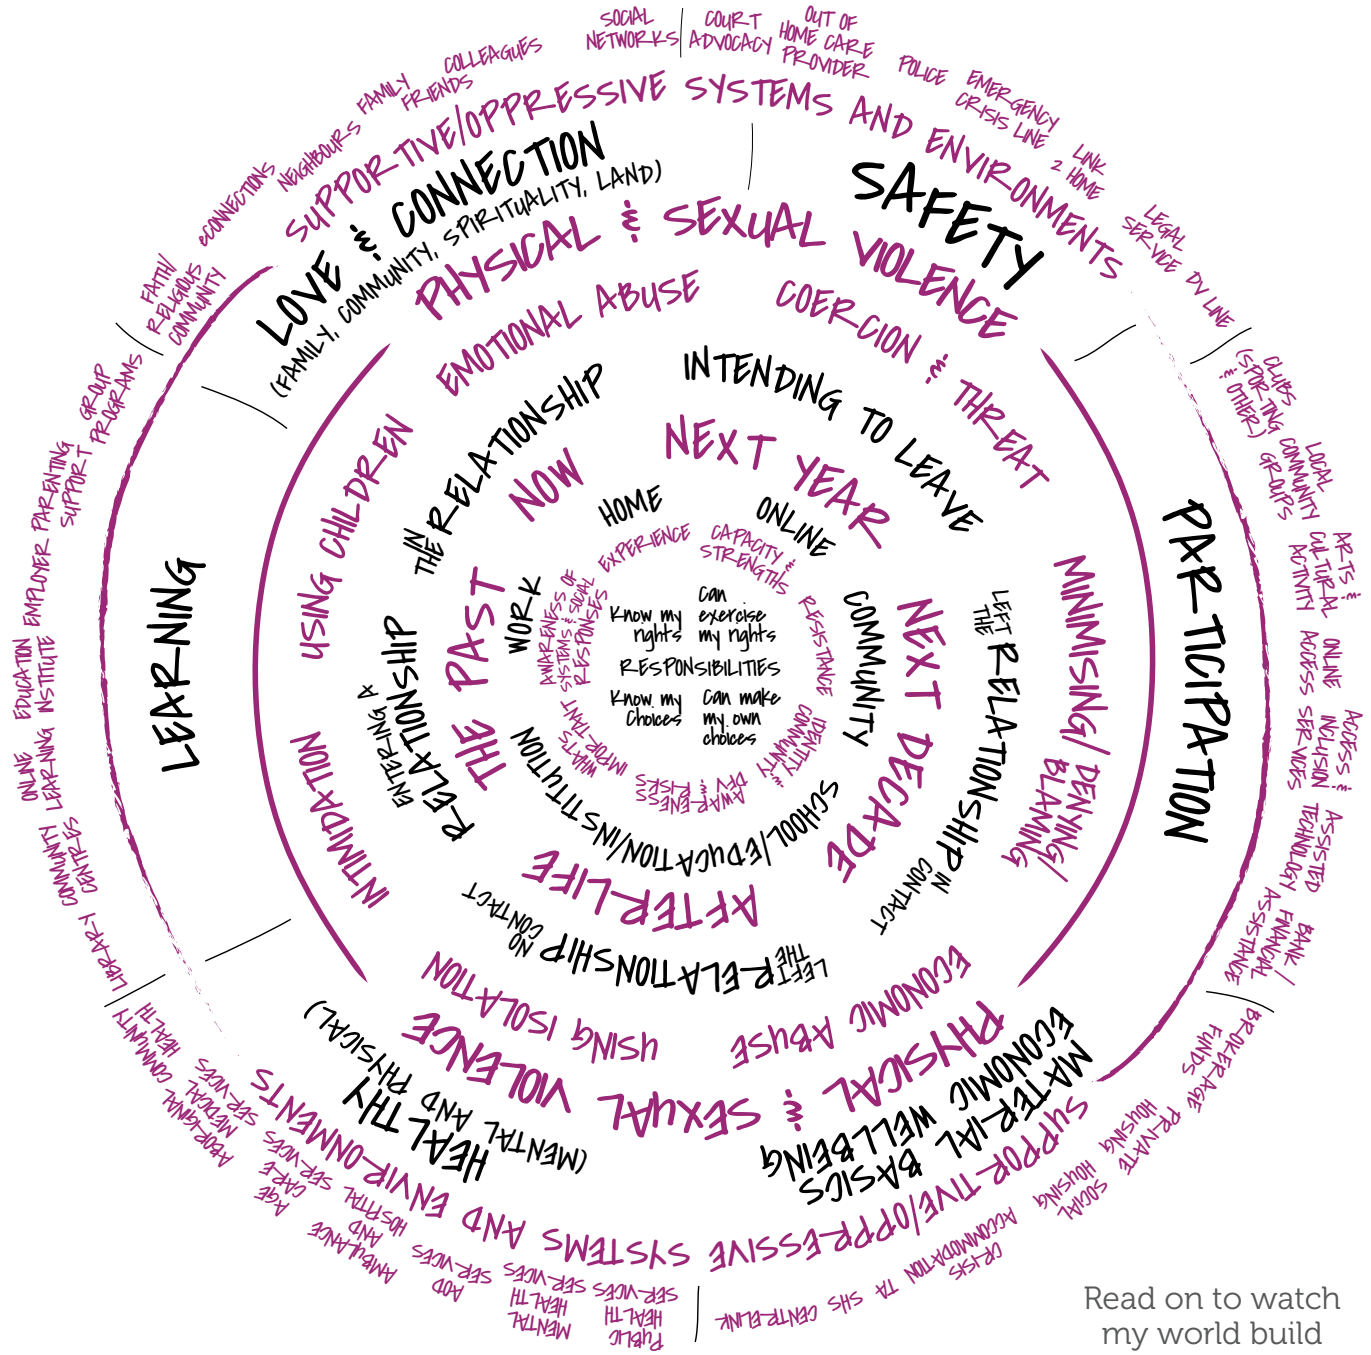 SOCIAL
NETWORKS
COURT
ADVOCACY
OUT OF
HOME CARE
PROVIDER
POLICE
EMERGENCY
CRISIS LINE
LINK
2 HOME
LEGAL
SERVICE
DV LINE
CLUBS
(SPORTING
& OTHER)
LOCAL
COMMUNITY
GROUPS
ARTS &
CULTURAL
ACTIVITY
ONLINE
ACCESS
ACCESS &
INCLUSION
SERVICES
ASSISTED
TECHNOLOGY
BANK /
FINANCIAL
ASSISTANCE
BROKERAGE
FUNDS
PRIVATE
HOUSING
SOCIAL
HOUSING
CRISIS
ACCOMMODATION
TA
SHS
CENTRELINK
PUBLIC
HEALTH
SERVICES
MENTAL
HEALTH
SERVICES
AOD
SERVICES
AMBULANCE
AND
HOSPITAL
AGE
CARE
SERVICES
ABORIGINAL
MEDICAL
SERVICES
COMMUNITY
HEALTH
LIBRARY
COMMUNITY
CENTRES
ONLINE
LEARNING
EDUCATION
INSTITUTE
EMPLOYER
PARENTING
SUPPORT
GROUP
PROGRAMS
FAITH/
RELIGIOUS
COMMUNITY
eCONNECTIONS
NEIGHBOURS
FAMILY
FRIENDS
COLLEAGUES
SUPPORTIVE/OPPRESSIVE SYSTEMS AND ENVIRONMENTS
SUPPORTIVE/OPPRESSIVE SYSTEMS AND ENVIRONMENTS
LOVE & CONNECTION
(FAMILY, COMMUNITY, SPIRITUALITY, LAND)
SAFETY
PARTICIPATION
MATERIAL BASICS
ECONOMIC WELLBEING
HEALTHY
(MENTAL AND PHYSICAL)
LEARNING
PHYSICAL & SEXUAL VIOLENCE
PHYSICAL & SEXUAL VIOLENCE
EMOTIONAL ABUSE
COERCION & THREAT
MINIMISING/DENYING/
BLAMING
ECONOMIC ABUSE
USING ISOLATION
INTIMIDATION
USING CHILDREN
IN
THE RELATIONSHIP
INTENDING TO LEAVE
LEFT
THE RELATIONSHIP IN
CONTACT
LEFT
THE RELATIONSHIP NO
CONTACT
ENTERING A
RELATIONSHIP
NOW
NEXT YEAR
NEXT DECADE
AFTER-LIFE
THE PAST
HOME
ONLINE
COMMUNITY
SCHOOL/EDUCATION/INSTITUTION
WORK
EXPERIENCE
CAPACITY &
STRENGTHS
RESISTANCE
IDENTITY &
COMMUNITY
AWARENESS
DFV & RISKS
WHAT'S
IMPORTANT
AWARENESS OF
SYSTEMS & SOCIAL
RESPONSES
Know my
rights
Can
exercise
my rights
RESPONSIBILITIES
Know my
Choices
Can make
my own
choices
Read on to watch
my world build